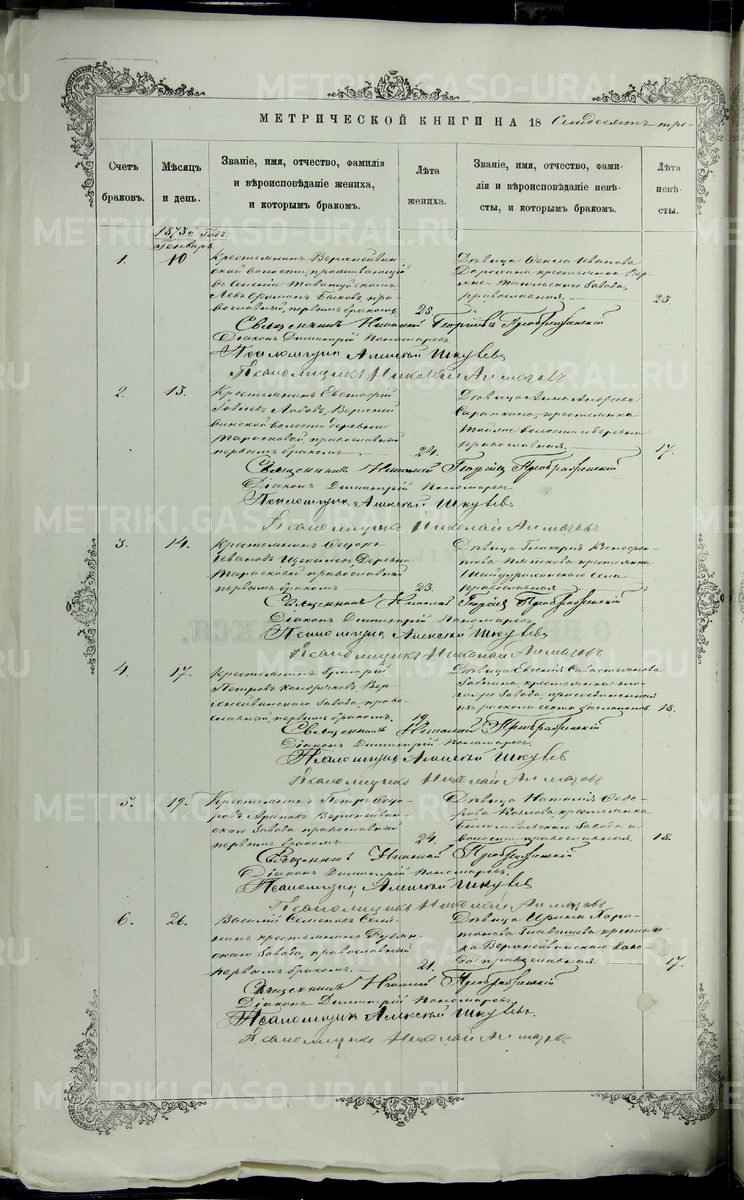 МЕТРИЧЕСКОЙ КНИГИ НА 18 Семдесятъ тре-
Счетъ браковъ.
Мѣсяцъ и день.
Званіе, имя, отчество, фамилія
и вѣроисповѣданіе жениха,
и которымъ бракомъ.
Лѣта жениха.
Званіе, имя, отчество, фами-
лія и вѣроисповѣданіе невѣ-
сты, и которымъ бракомъ.
Лѣта невѣ-
сты.
1873й Годъ
Генварь
1. 10
Крестьянинъ Верхнейвин-
ской волости, проживающій
въ Селеніи Таватуйскомъ
православный, первымъ бракомъ 25.
Дѣвица Ѳекла Иванова
крестьянка Вер-
хне-Тагильскаго завода,
православная. 23.
Священникъ Николай Георгіевъ Преображенскій
Діаконъ Димитрій Пономаревъ
Псаломщикъ Алексѣй Шкувевъ
Псаломщикъ Николай Алмазовъ
2. 13.
Крестьянинъ Евстафій
Лобовъ, Верхней-
винской волости деревни
Тарасковой, православный
первымъ бракомъ 24.
Дѣвица Анна Андреева
крестьянка
волости и деревни
православная, 17.
Священникъ Николай Георгіевъ Преображенскій
Діаконъ Димитрій Пономаревъ
Псаломщикъ Алексѣй Шкувевъ
Псаломщикъ Николай Алмазовъ
3. 14.
Крестьянинъ Ѳедоръ
Ивановъ деревни
Тарасковой православный
первымъ бракомъ 23.
Дѣвица Гликерія Ксенофон-
това крестьянка
Шайдурихинскаго села
православная
Священникъ Николай Георгіевъ Преображенскій
Діаконъ Димитрій Пономаревъ
Псаломщикъ Алексѣй Шкувевъ
Псаломщикъ Николай Алмазовъ
4. 17.
Крестьянинъ Григорій
Петровъ Вер-
хнейвинскаго завода, право-
славный, первымъ бракомъ. 19.
Дѣвица Евгенія Савастьянова
крестьянка то-
го же завода, присоединенная
изъ раскола 18.
Священникъ Николай Преображенскій
Діаконъ Димитрій Пономаревъ
Псаломщикъ Алексѣй Шкувевъ
Псаломщикъ Николай Алмазовъ
5. 19.
Крестьянинъ Петръ Ѳедо-
ровъ Араповъ Верхнейвин-
скаго завода православный
первымъ бракомъ 24.
Дѣвица Наталія Ѳедо-
рова Козлова, крестьянка
Билимбаевскаго завода и
волости православная. 18.
Священникъ Николай Преображенскій
Діаконъ Димитрій Пономаревъ.
Псаломщикъ Алексѣй Шкувевъ
Псаломщикъ Николай Алмазовъ
6. 26.
Василій Семеновъ Селя-
нинъ крестьянинъ Рудян-
скаго завода, православный
первымъ бракомъ. 21.
Дѣвица Ирина Хари-
тонова крестьян-
ка Верхнейвинскаго заво-
да православная. 17.
Священникъ Николай Преображенскій
Діаконъ Димитрій Пономаревъ.
Псаломщикъ Алексѣй Шкувевъ.
Псаломщикъ Николай Алмазовъ
METRIKI.GASO-URAL.RU